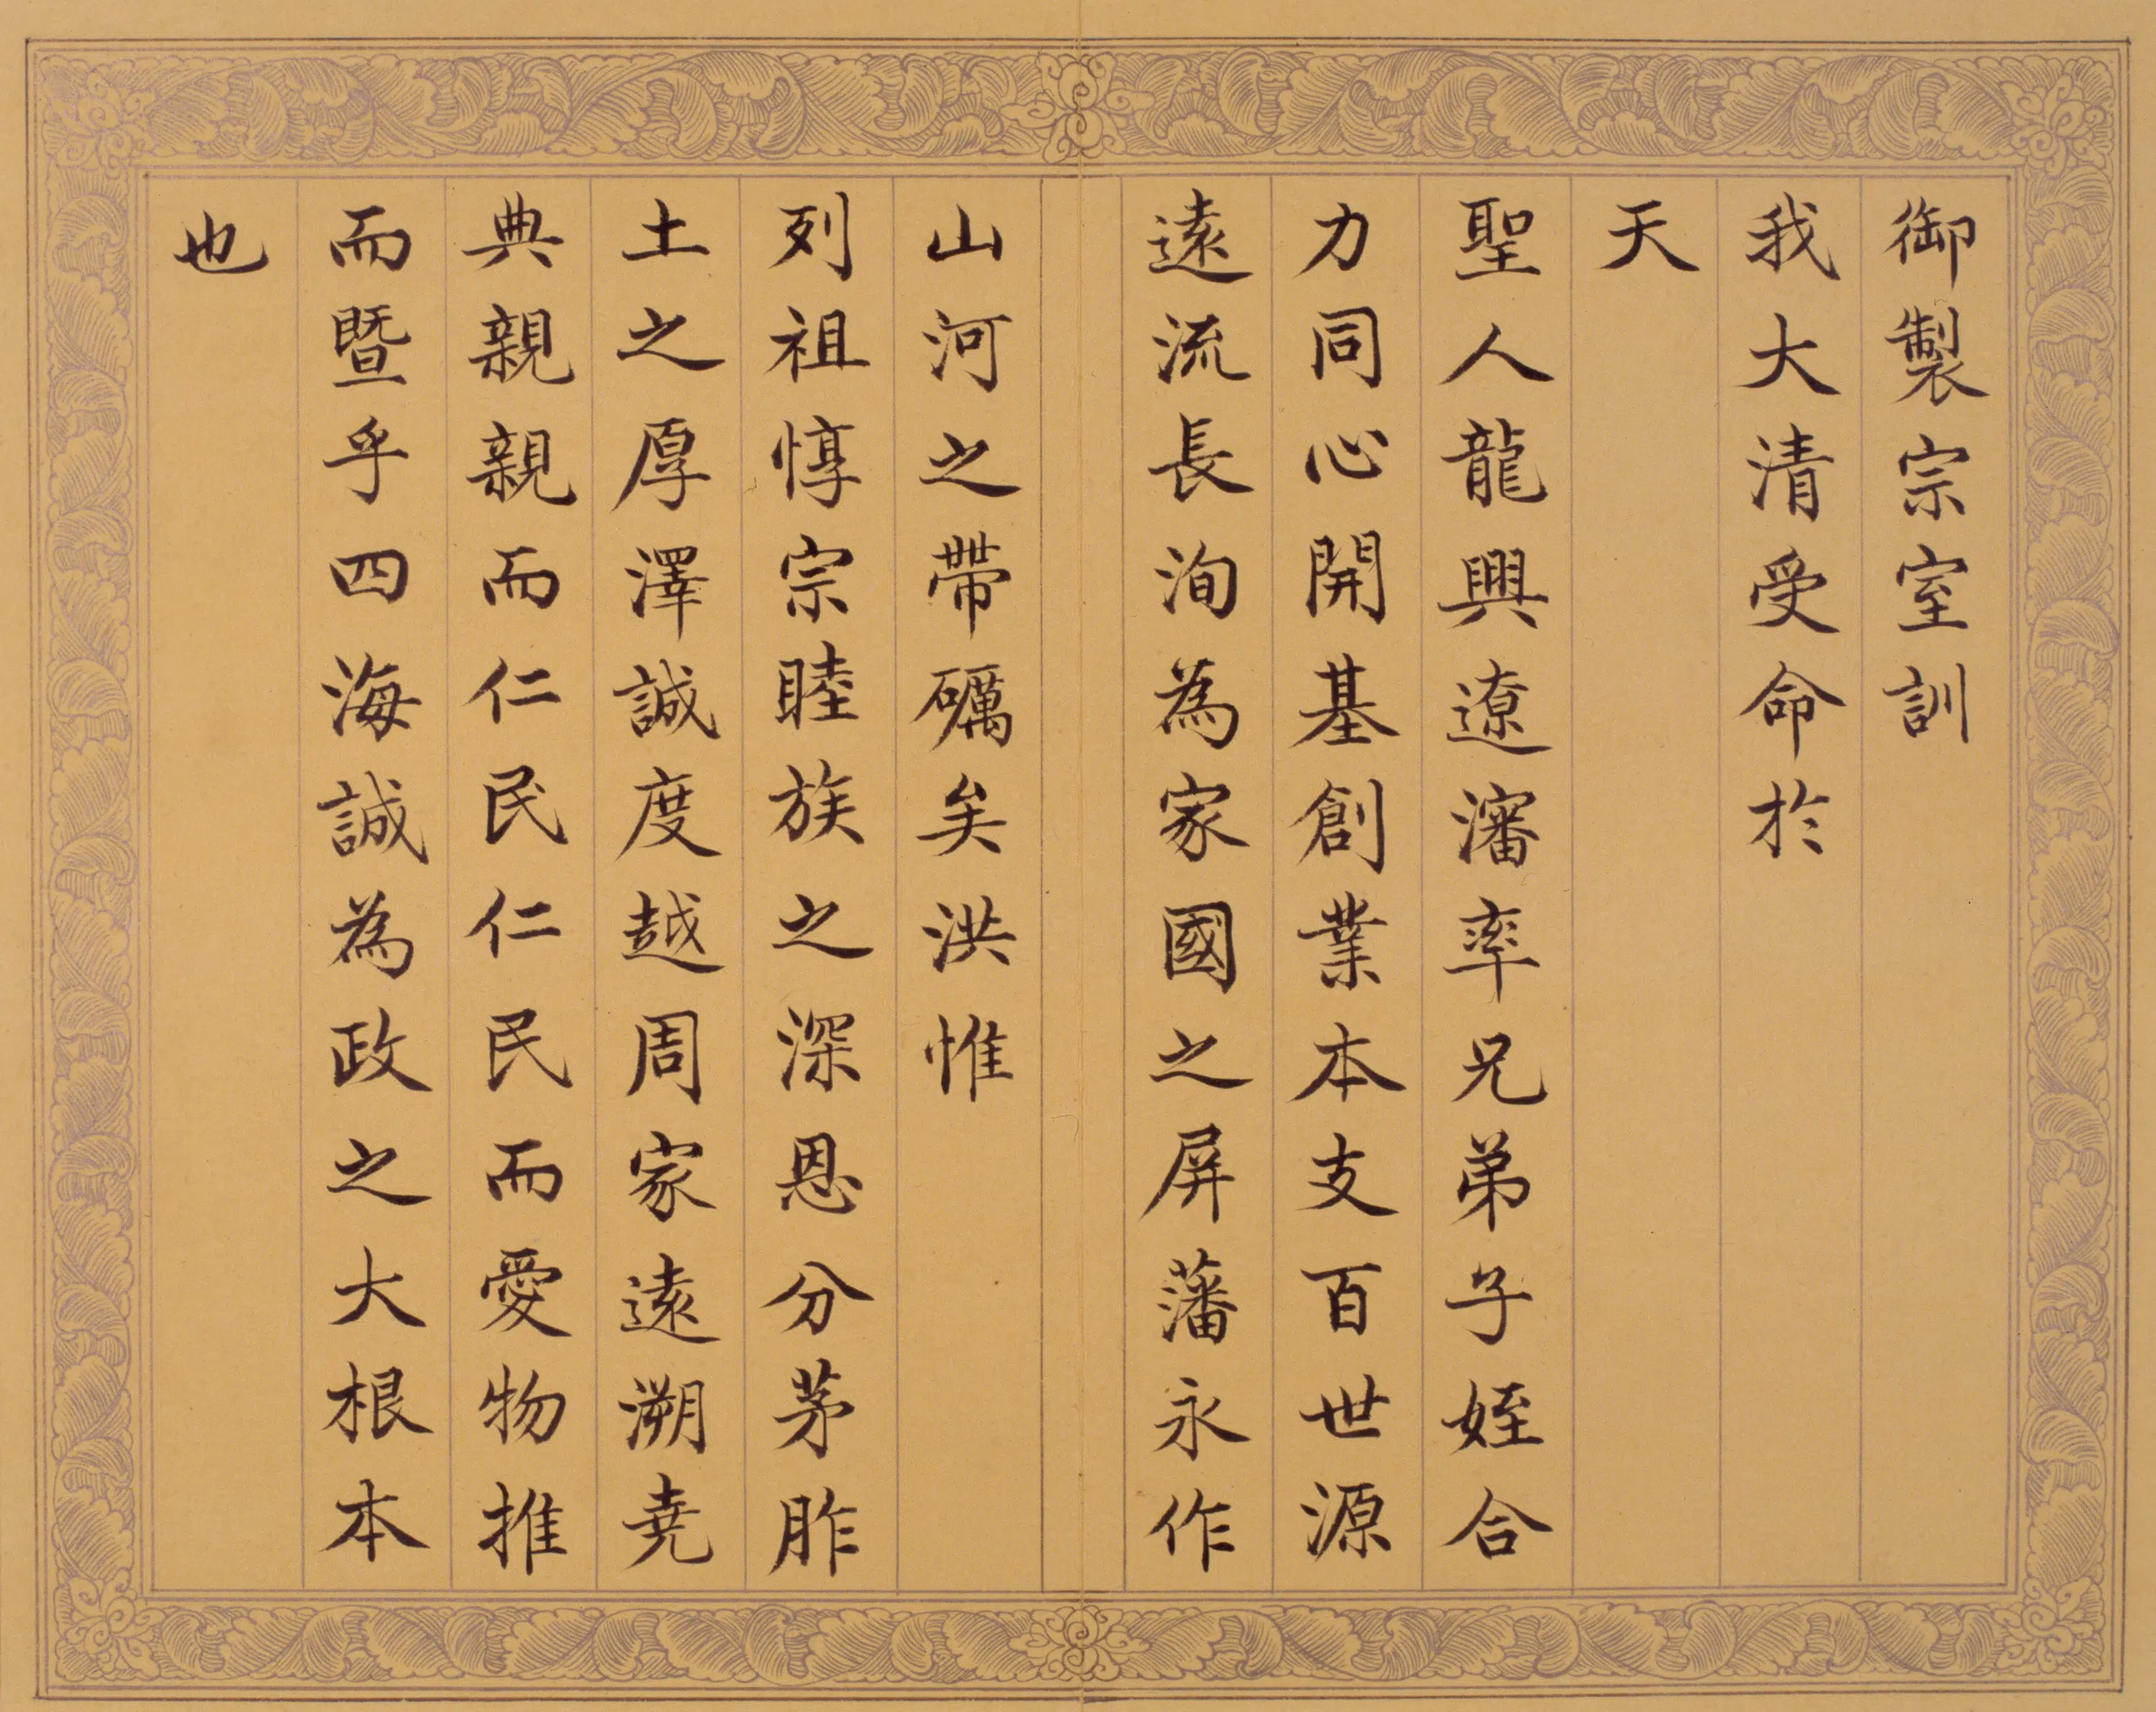 御製宗室訓
我大清受命於
天
聖人龍興遼瀋率兄弟子姪合
力同心開基創業本支百世源
遠流長洵為家國之屏藩永作
山河之帶礪矣洪惟
列祖惇宗睦族之深恩分茅胙
土之厚澤誠度越周家遠溯堯
典親親而仁民仁民而愛物推
而暨乎四海誠為政之大根本
也